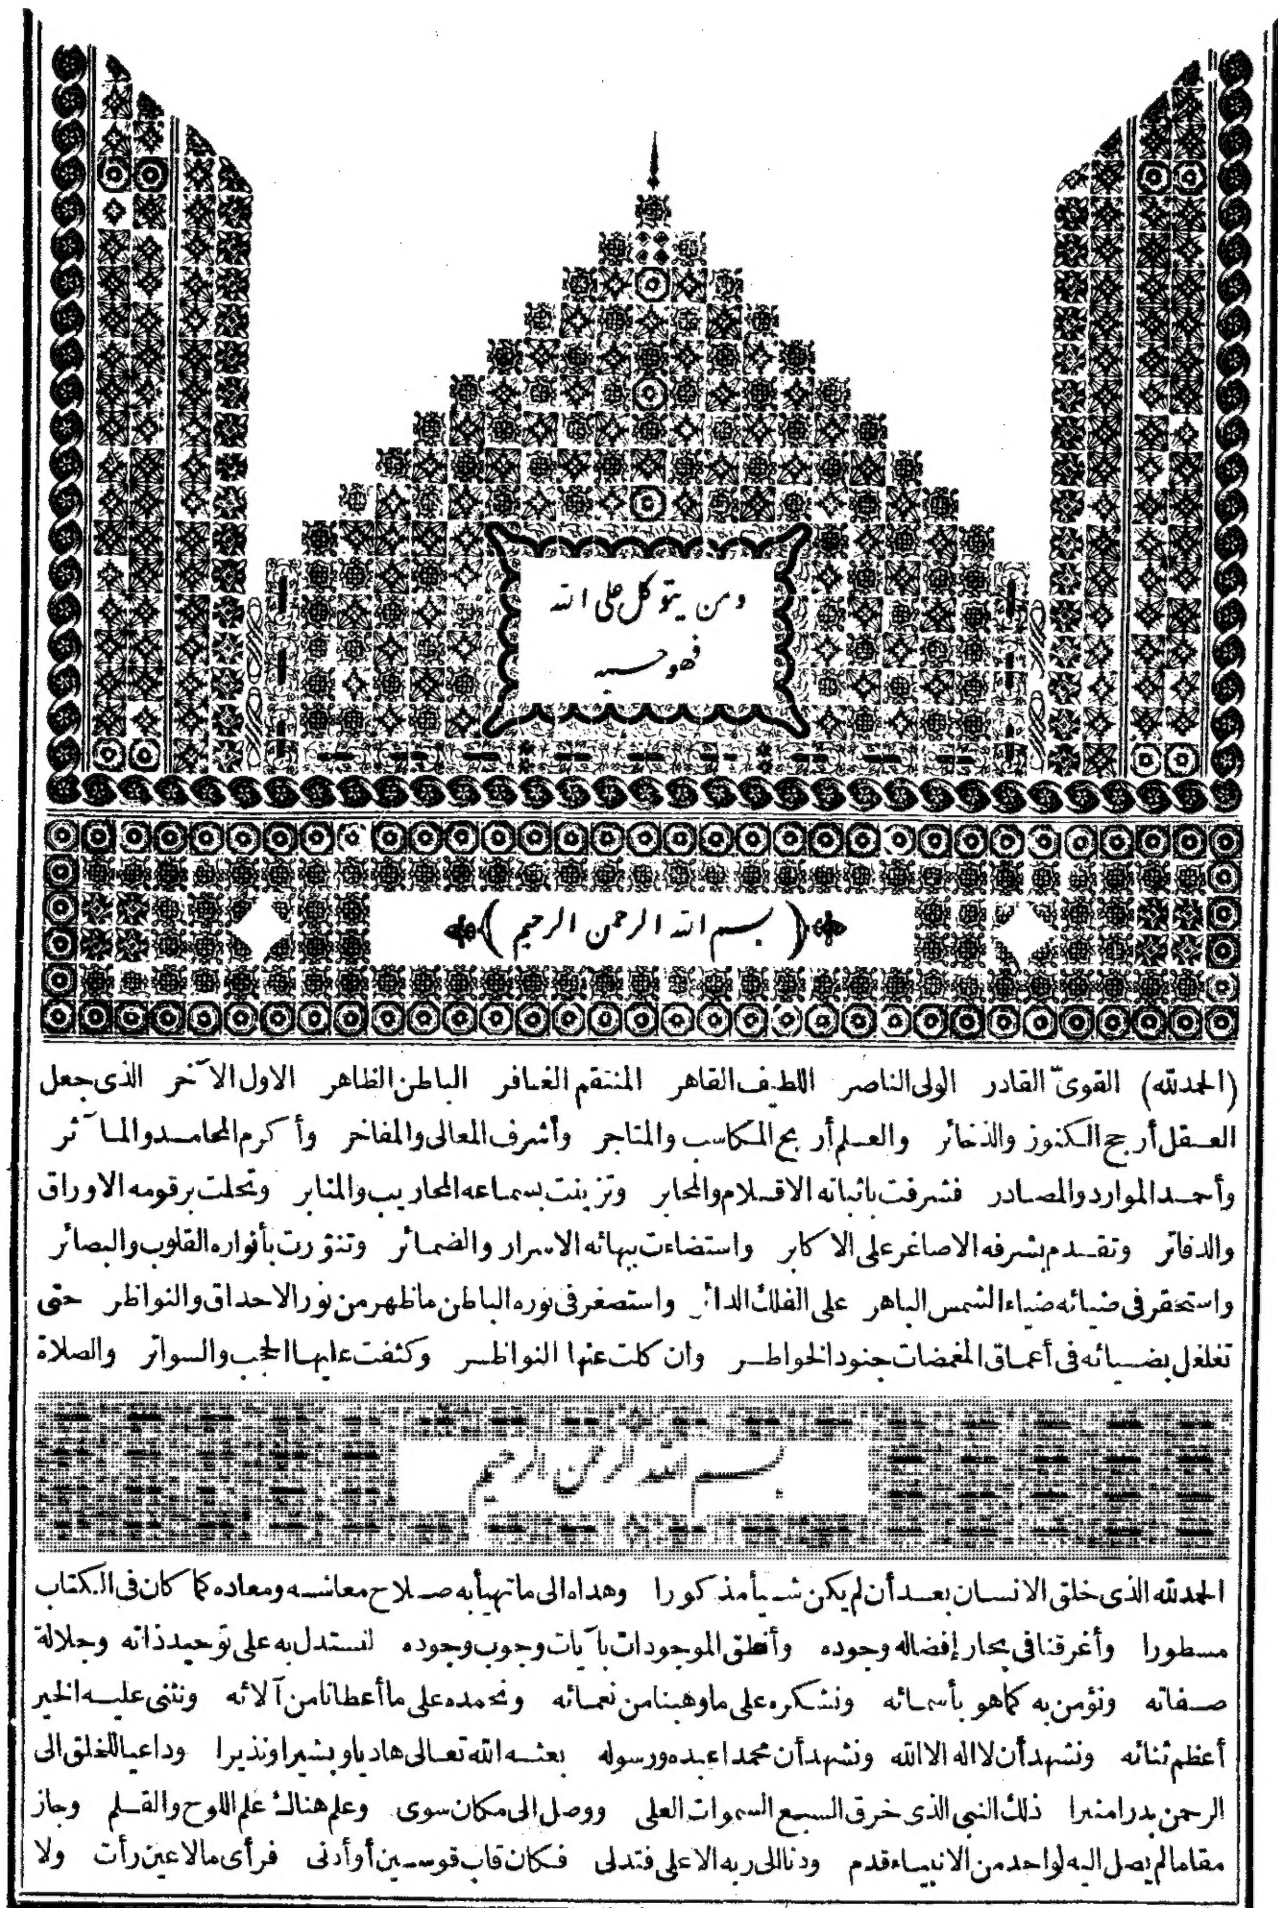 ومن يتوكل على الله
فهو حسبه
(بسم الله الرحمن الرحيم)
(الحمد لله) القوىّ القادر الولى الناصر اللطيف القاهر المنتقم الغافر الباطن الظاهر الاول الآخر الذى جعل
العقل أرجح الكنوز والذخائر والعلم أربح المكاسب والمتاجر وأشرف المعالى والمفاخر وأكرم المحامد والمآثر
وأحمد الموارد والمصادر فشرفت باثباته الاقلام والمحابر وتزينت بسماعه المحاريب والمنابر وتحلت برقومه الاوراق
والدفاتر وتقدم بشرفه الاصاغر على الاكابر واستضاءت ببهائه الاسرار والضمائر وتنوّرت بأنواره القلوب والبصائر
واستحقر فى ضيائه ضياء الشمس الباهر على الفلك الدائر واستصغر فى نوره الباطن ماظهر من نور الاحداق والنواظر حتى
تغلغل بضيائه فى أعماق المغمضات جنود الخواطر وان كلت عنها النواظر وكثفت عليها الحجب والسواتر والصلاة
بسم الله الرحمن الرحيم
الحمد لله الذى خلق الانسان بعد أن لم يكن شيأ مذكورا وهداه الى ماتهيأ به صلاح معاشه ومعاده كما كان فى الكتاب
مسطورا وأغرقنا فى بحار إفضاله وجوده وأنطق الموجودات بآيات وجوب وجوده لنستدل به على توحيد ذاته وجلالة
صفاته ونؤمن به كما هو بأسمائه ونشكره على ماوهبنا من نعمائه ونحمده على ماأعطانا من آلائه ونثنى عليه الخير
أعظم ثنائه ونشهد أن لااله الا الله ونشهد أن محمدا عبده ورسوله بعثه الله تعالى هاديا وبشيرا ونذيرا وداعيا للخلق الى
الرحمن بدرا منيرا ذلك النبى الذى خرق السبع السموات العلى ووصل الى مكان سوى وعلم هناك علم اللوح والقلم وجاز
مقاما لم يصل اليه لواحد من الانبياء قدم ودنا الى ربه الاعلى فتدلى فكان قاب قوسين أو أدنى فرأى مالا عين رأت ولا